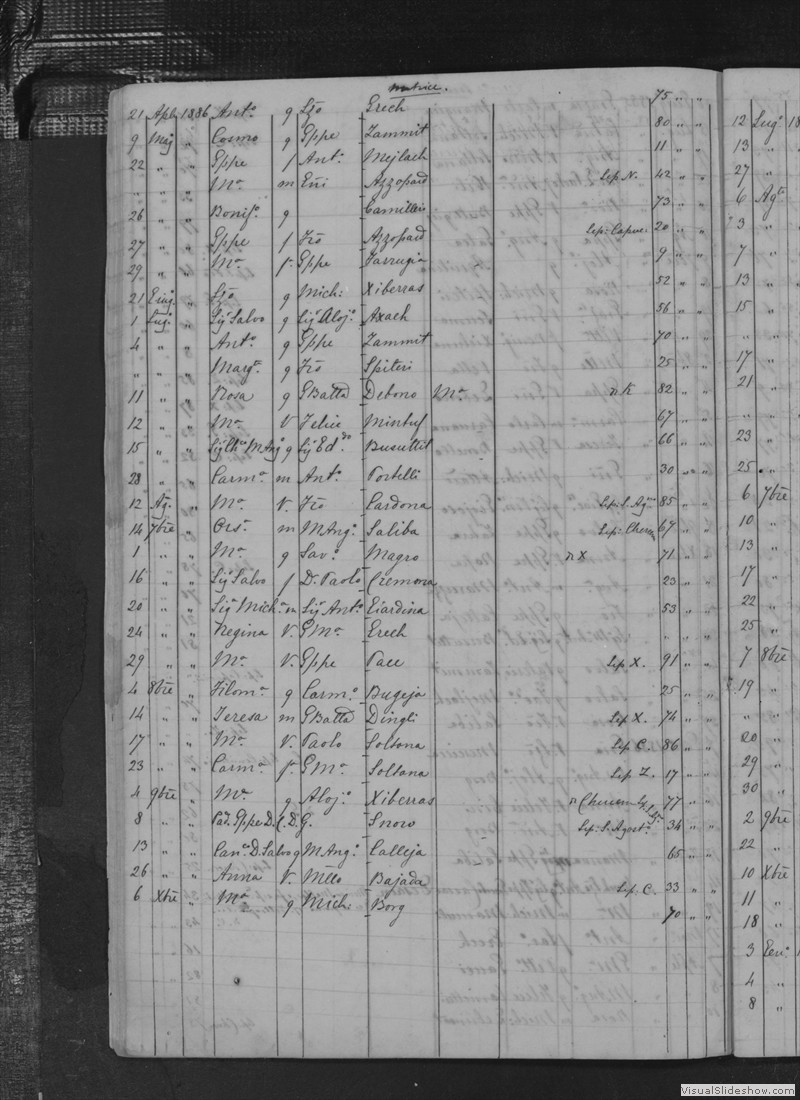 Matrice.
21 Apl. 1886 Anto. g Lzo Grech 75 " "
9 Mag " Cosmo g Gppe Zammit 80 " "
22 " " Gppe f Anto. Mejlach 11 " "
" " " Ma. m Eñi Azzopard Sep. N. 42 " "
26 " " Bonifo. g Camilleri 73 " "
27 " " Gppe f Fco Azzopard Sep: Capuc. 20 " "
29 " " Ma. f. Gppe Farrugia 9 " "
21 Giugo. " Lzo g Mich: Xiberras 52 " "
1 Lugo. " Sigr Salvo g Sigr Alojo. Axach 56 " "
4 " " Anto. g Gppe Zammit 70 " "
" " " Marga. g Fco Spiteri 25 " "
11 " " Rosa g GBatta Debono Ma. n K 82 " "
12 " " Ma. V Felice Mintuf 67 " "
15 " " g Sigr Eddo. Busuttil 66 " "
28 " " Carma. m Anto. Portelli 30 " "
12 Ag. " Ma. V. Fco Cardona Sep: S. Ag. 85 " "
14 7bre " Orsa. m MAngo. Saliba Sep: Cherem 67 " "
1 " " Ma. g Savo. Magro n X 71 " "
16 " " Sigr Salvo f Dr. Paolo Cremona 23 " "
20 " " Sigr Micha. m Sigr Anto. Giardina 53 " "
24 " " Regina V. GMa. Grech " " "
29 " " Ma. V. Gppe Pace Sep. X. 91 " "
4 8bre " Filoma. g Carmo. Bugeja 25 " "
14 " " Teresa m GBatta Dingli Sep X. 74 " "
17 " " Ma. V. Paolo Soltana Sep C. 86 " "
23 " " Carma. f. GMa. Soltana Sep Z. 17 " "
4 9bre " Ma. g Alojo. Xiberras 77 " "
8 " " Pad. Gppe D. C. D. G. Snow Sep: S. Agosto. 34 " "
13 " " Cano. D. Salvo g MAngo. Calleja 65 " "
26 " " Anna V. Mllo Bajada Sep. C. 33 " "
6 Xbre " Ma. g Mich: Borg 70 " "
12 Lugo. 18
13 "
27 "
6 Agt.
3 "
7 "
13 "
15 "
" "
17 "
21 "
" "
23 "
25 "
6 7bre
10 "
13 "
17 "
22 "
25 "
7 8bre
19 "
" "
20 "
29 "
30 "
2 9bre
22 "
10 Xbre
11 "
18 "
3 Geno. 1
4 "
8 "
VisualSlideshow.com